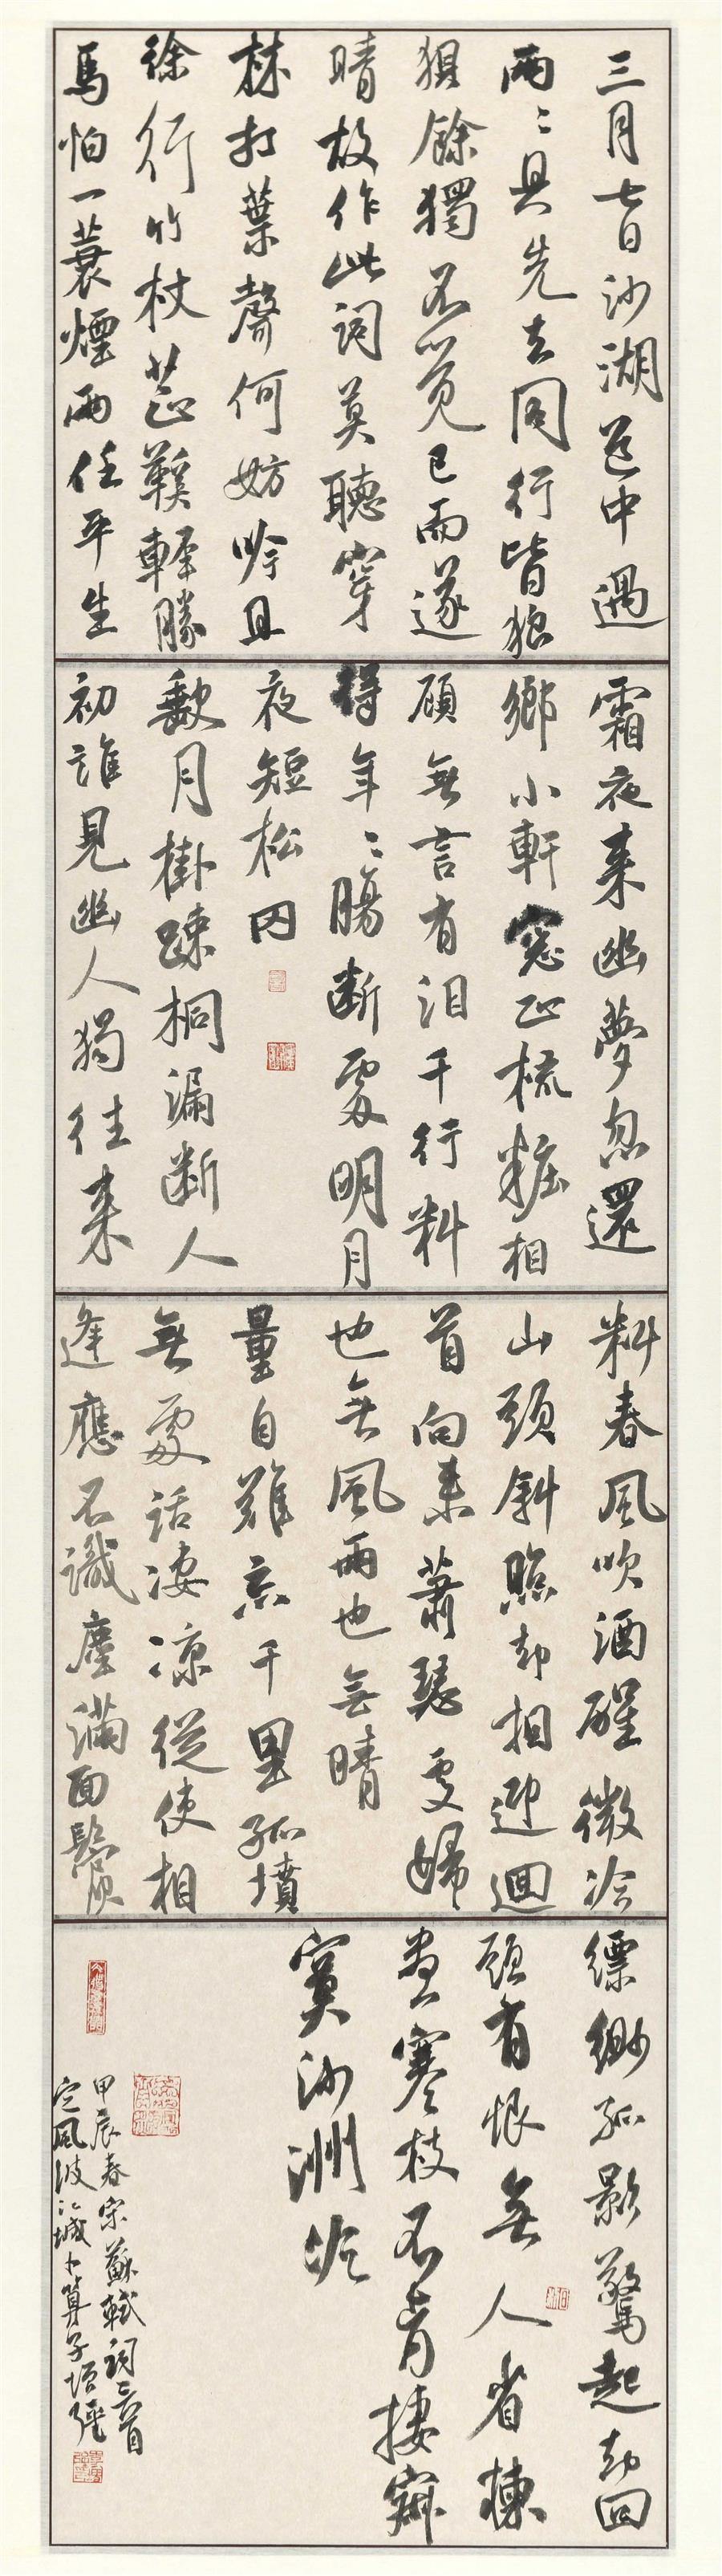 三月七日沙湖道中遇
雨〻具先去同行皆狼
狽餘獨不覺已而遂
晴故作此詞莫聽穿
林打葉聲何妨吟且
徐行竹杖芒鞵輕勝
馬怕一蓑煙雨任平生
霜夜來幽夢忽還
鄉小軒窓正梳粧相
顧無言有泪千行料
得年〻腸斷處明月
夜短松冈
缺月掛疎桐漏斷人
初誰見幽人獨往來
料春風吹酒醒微冷
山頭斜照却相迎迴
首向來蕭瑟處歸
也無風雨也無晴
量自難忘千里孤墳
無處話淒凉從使相
逢應不識塵滿面鬢
縹緲孤影驚起却回
頭有恨無人省揀
盡寒枝不肯棲寂
寞沙洲冷
甲辰春宋蘇軾詞三首
定風波江城卜算子